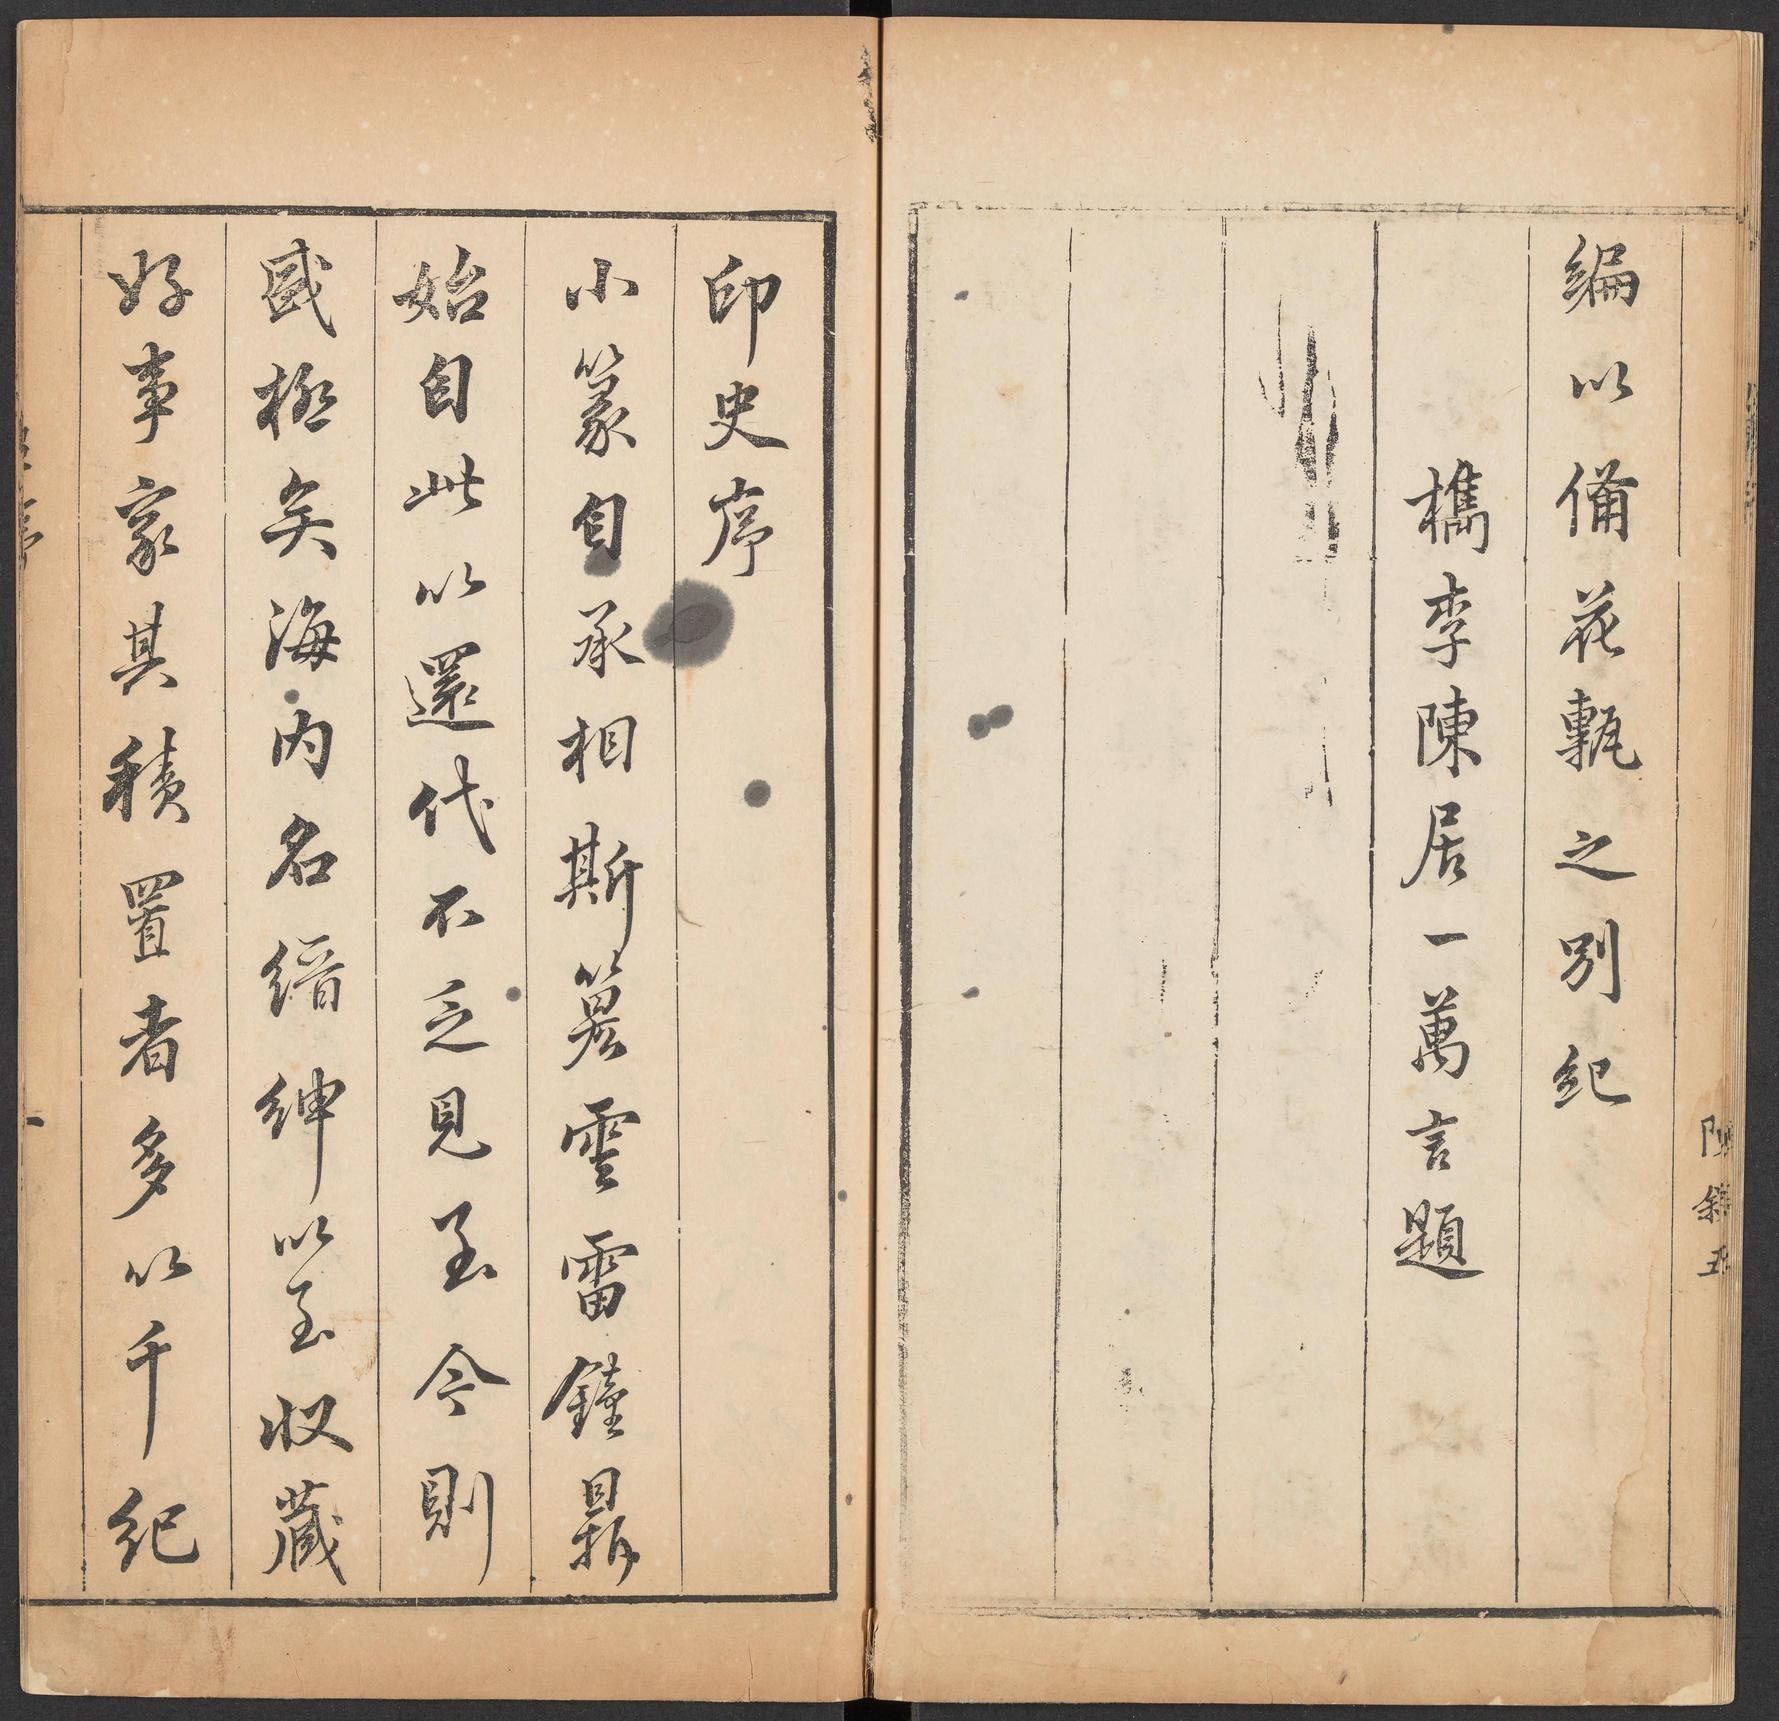 編以備花甎之別紀
檇李陳居一萬言題
陳叙五
印史序
小篆自承相斯㫷雲雷鐘鼎
始自此以還代不乏見至今則
盛極矣海内名縉紳以至收藏
好事家其積置者多以千紀